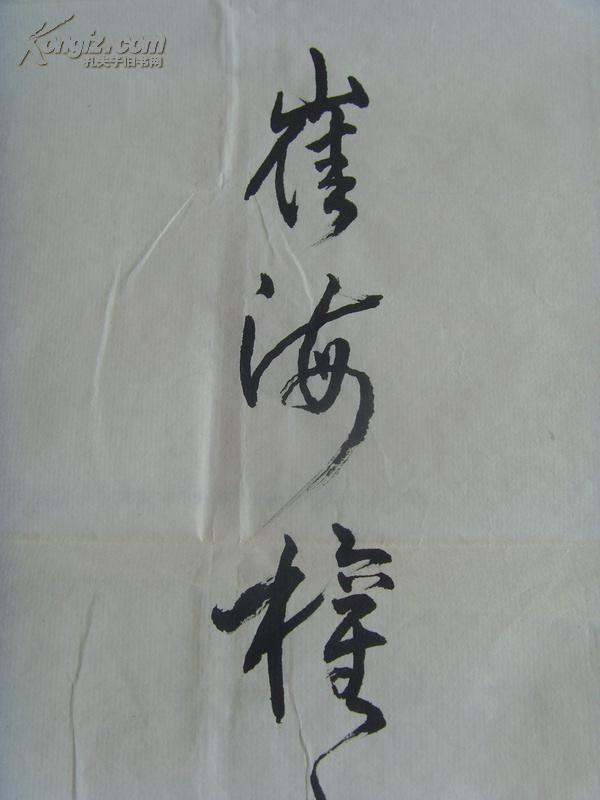 Kongfz.com
孔夫子旧书网
崔
海
權